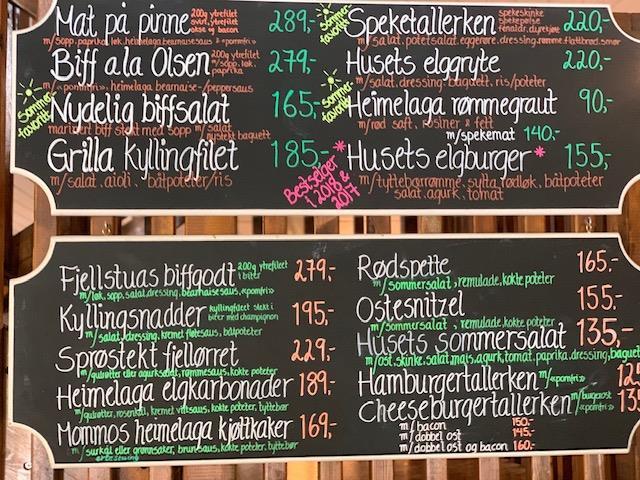 Mat på pinne 200g ytrefilet svin, ytrefilet okse og bacon 289,-
m/sopp, paprika, løk, heimelaga bearnaisesaus, «pomfri»
Biff ala Olsen 200g ytrefilet m/sopp, løk, paprika 279,-
m/«pomfri», heimelaga bearnaise-/peppersaus
Sommer favoritt
Nydelig biffsalat 165,-
marinert biff stekt med sopp m/salat, nystekt baguett
Grilla kyllingfilet 185,-
m/salat, aioli, båtpoteter/ris
Sommer favoritt
Spekетallerken spekeskinke spekepølse fenalår, dyrekjøtt 220,-
m/salat, potetsalat, eggerøre, dressing, rømme, flattbrød, smør
Husets elggryte 220,-
m/salat, dressing, baguett, ris/poteter
Sommer favoritt
Heimelaga rømmegraut 90,-
m/rød saft, rosiner & fett
m/spekemat 140,-
Husets elgburger * 155,-
m/tyttebærrømme, sylta rødløk, båtpoteter
salat, agurk, tomat
* Bestselger i 2018 & 2017
Fjellstuas biffgodt 200g ytrefilet i biter 279,-
m/løk, sopp, salat, dressing, bearnaisesaus, «pomfri»
Kyllingsnadder kyllingfileet stekt i biter med champignon 195,-
m/salat, dressing, kremet fløtesaus, båtpoteter
Sprøstekt fjellørret 229,-
m/gulrøtter eller agurksalat, rømmesaus, kokte poteter
Heimelaga elgkarbonader 189,-
m/gulrøtter, rosenkål, kremet viltsaus, kokte poteter, tyttebær
Mommos heimelaga kjøttkaker 169,-
m/surkål eller grønnsaker, brun saus, kokte poteter, tyttebær
Rødspette 165,-
m/sommersalat, remulade, kokte poteter
Ostesnitzel 155,-
m/sommersalat, remulade, kokte poteter
Husets sommersalat 135,-
m/ost, skinke, salat, mais, agurk, tomat, paprika, dressing, baguett
Hamburgertallerken m/«pomfri»
Cheeseburgertallerken m/burgerost «pomfri»
m/bacon 150,-
m/dobbel ost 145,-
m/dobbel ost og bacon 160,-